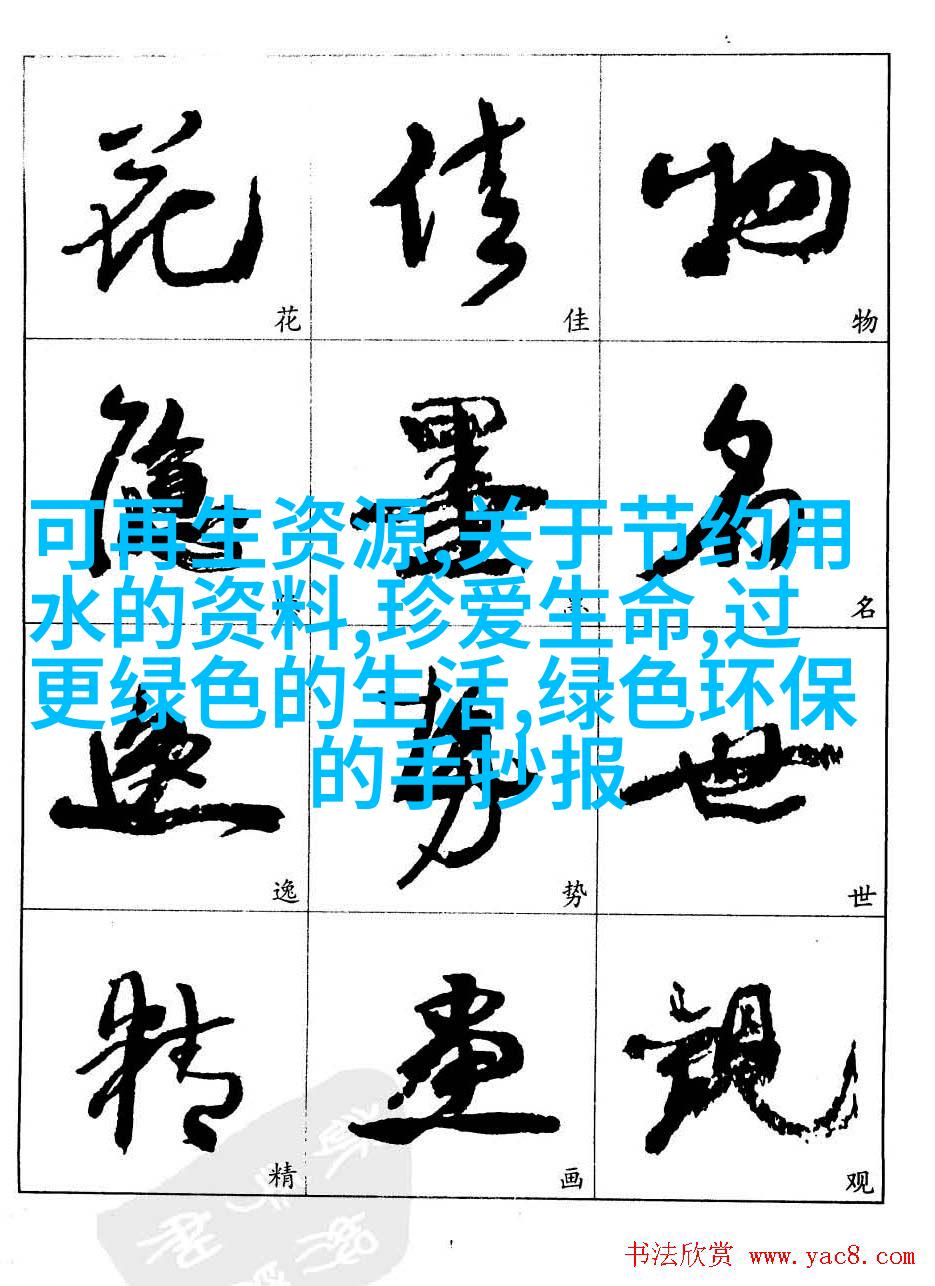 花 佳 物
花 佳 物
隱 墨 名
名
可再生资源,关于节约用
水的资料,珍爱生命,过
更绿色的生活,绿色环保
的手抄报
逸 势 世
逸 势 世
精 畫 觀
精 画 观
书法欣赏 www.yac8.com